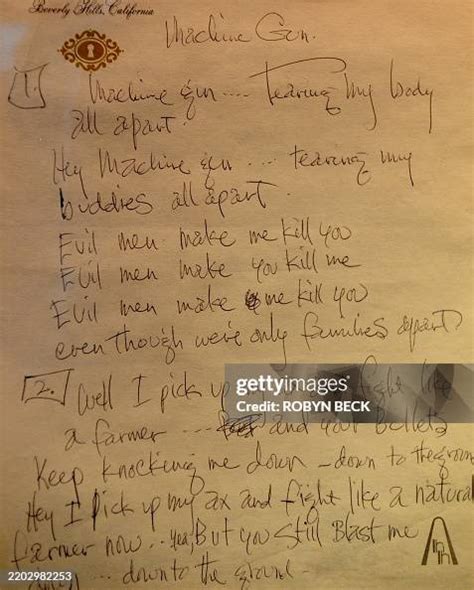 Beverly Hills, California
Machine Gun.
1.
Machine gun .... Tearing My body
all apart.
Hey Machine gun .... tearing my
buddies all apart.
Evil men make me kill you
Evil men make you kill me
Evil men make me kill you
even though we're only families apart
2.
Well I pick up fight like
a farmer ..... and your bullets
Keep knocking me down - down to the ground
Hey I pick up my ax and fight like a natural
farmer now .. yea, But you still Blast me
... down to the ground -
gettyimages
Credit: ROBYN BECK
2202982253